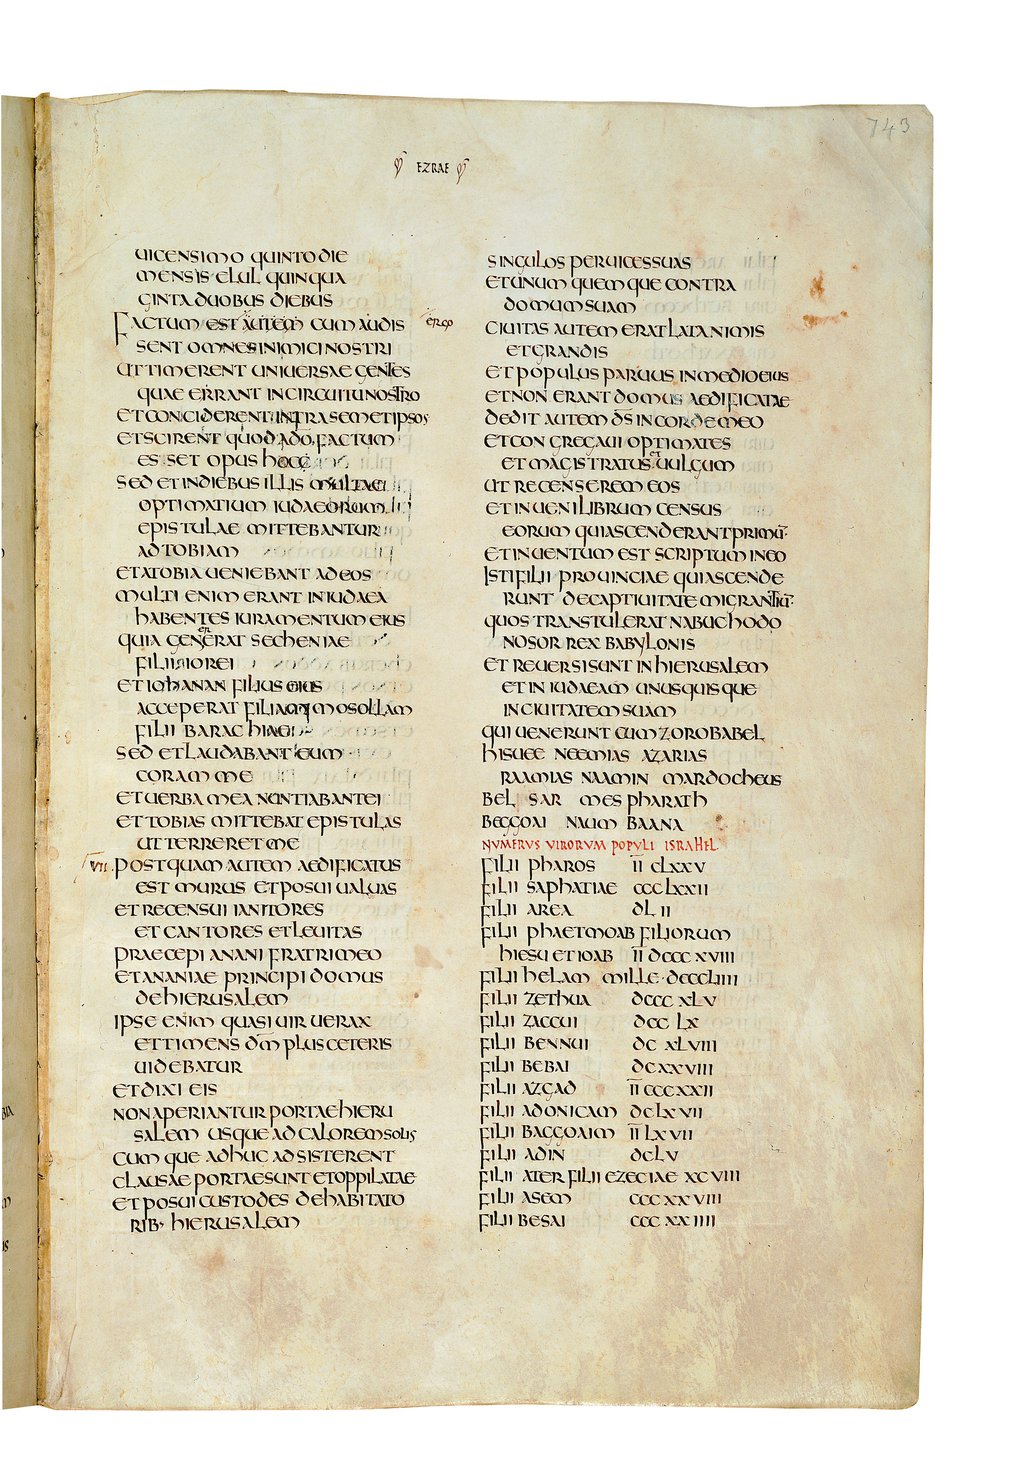 743
EZRAE
UICENSIMO QUINTO DIE
MENSIS ELUL QUINQUA
GINTA DUOBUS DIEBUS
FACTUM EST AUTEM CUM AUDIS
ergo
SENT OMNES INIMICI NOSTRI
UT TIMERENT UNIUERSAE GENTES
QUAE ERRANT IN CIRCUITU NOSTRO
ET CONCIDERENT INTRA SEMETIPSOS
ET SCIRENT QUOD A DŌ FACTUM
ES SET OPUS HOC
SED ET IN DIEBUS ILLIS MULTAE
OPTIMATIUM IUDAEORUM
EPISTULAE MITTEBANTUR
AD TOBIAM
ET A TOBIA UENIEBANT AD EOS
MULTI ENIM ERANT IN IUDAEA
HABENTES IURAMENTUM EIUS
QUIA GENER ERAT SECHENIAE
FILII IOREI
ET IOHANAN FILIUS EIUS
ACCEPERAT FILIAM MOSOLLAM
FILII BARACHIAE
SED ET LAUDABANT EUM
CORAM ME
ET UERBA MEA NUNTIABANT EI
ET TOBIAS MITTEBAT EPISTULAS
UT TERRERET ME
VII POSTQUAM AUTEM AEDIFICATUS
EST MURUS ET POSUI UALUAS
ET RECENSUI IANITORES
ET CANTORES ET LEUITAS
PRAECEPI ANANI FRATRI MEO
ET ANANIAE PRINCIPI DOMUS
DE HIERUSALEM
IPSE ENIM QUASI UIR UERAX
ET TIMENS DM̄ PLUS CETERIS
UIDEBATUR
ET DIXI EIS
NON APERIANTUR PORTAE HIERU
SALEM USQUE AD CALOREM SOLIS
CUMQUE ADHUC ADSISTERENT
CLAUSAE PORTAE SUNT ET OPPILATAE
ET POSUI CUSTODES DE HABITATO
RIB, HIERUSALEM
SINGULOS PER UICES SUAS
ET UNUM QUEMQUE CONTRA
DOMUM SUAM
CIUITAS AUTEM ERAT LATA NIMIS
ET GRANDIS
ET POPULUS PARUUS IN MEDIO EIUS
ET NON ERANT DOMUS AEDIFICATAE
DEDIT AUTEM DS̄ IN CORDE MEO
ET CONGREGAUI OPTIMATES
ET MAGISTRATUS ET UULGUM
UT RECENSEREM EOS
ET INUENI LIBRUM CENSUS
EORUM QUI ASCENDERANT PRIMŪ
ET INUENTUM EST SCRIPTUM IN EO
ISTI FILII PROUINCIAE QUI ASCENDE
RUNT DE CAPTIUITATE MIGRANTIŪ
QUOS TRANSTULERAT NABUCHODO
NOSOR REX BABYLONIS
ET REUERSI SUNT IN HIERUSALEM
ET IN IUDAEAM UNUSQUISQUE
IN CIUITATEM SUAM
QUI UENERUNT CUM ZOROBABEL
HISUEE NEEMIAS AZARIAS
RAAMIAS NAAMIN MARDOCHEUS
BEL SAR MES PHARATH
BEGGOAI NAUM BAANA
NUMERUS UIRORUM POPULI ISRAHEL
FILII PHAROS II CLXXV
FILII SAPHATIAE CCCLXXII
FILII AREA DLII
FILII PHAETMOAB FILIORUM
HIESU ET IOAB II DCCCXVIII
FILII HELAM MILLE DCCCLIIII
FILII ZETHUA DCCCXLV
FILII ZACCUI DCCLX
FILII BENNUI DCXLVIII
FILII BEBAI DCXXVIII
FILII AZGAD II CCCXXII
FILII ADONICAM DCLXVII
FILII BAGGOAIM II LXVII
FILII ADIN DCLV
FILII ATER FILII EZECIAE XCVIII
FILII ASEM CCCXXVIII
FILII BESAI CCCXXIIII